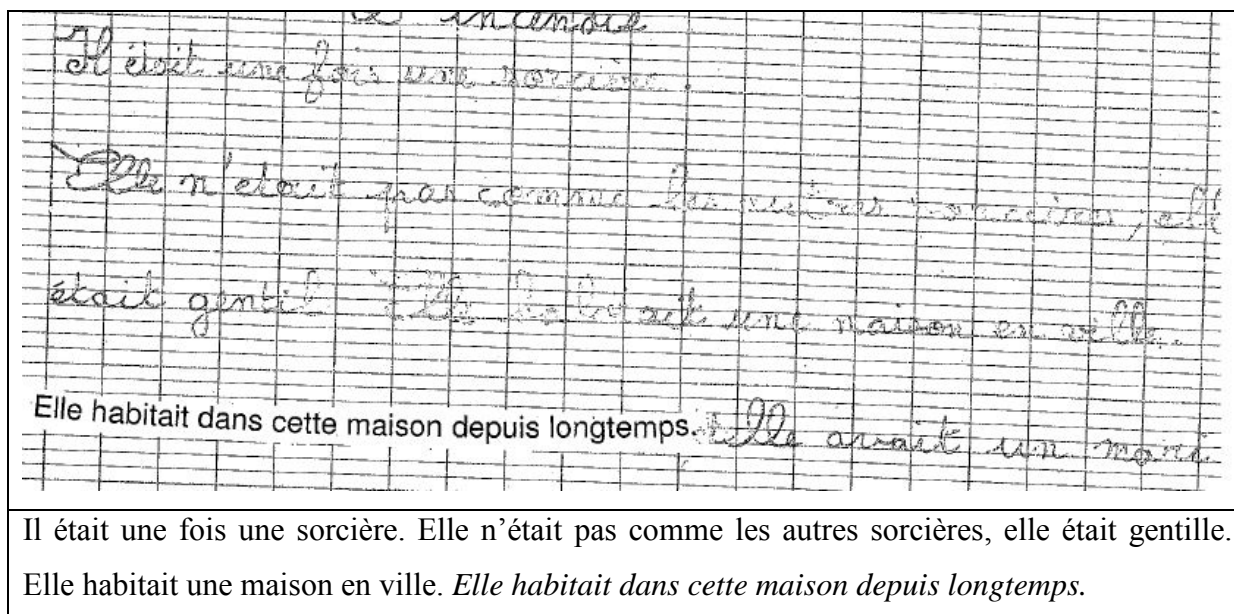 incendie
Il était une fois une sorcière.
Elle n'etait pas comme les autres sorcières, elle
était gentil Elle habitait une maison en ville.
Elle habitait dans cette maison depuis longtemps. elle avait un mari
Il était une fois une sorcière. Elle n’était pas comme les autres sorcières, elle était gentille.
Elle habitait une maison en ville. Elle habitait dans cette maison depuis longtemps.